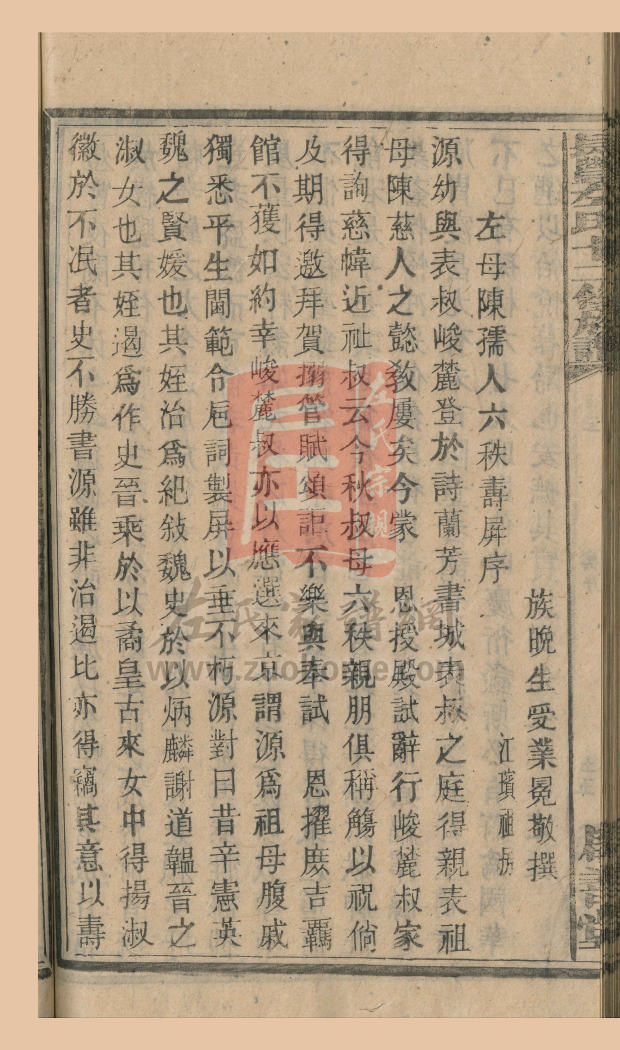 族晚生受業冕敬撰
江瓆祖坊
左母陳孺人六秩壽屏序
源幼與表叔峻麓登於詩蘭芳書城表叔之庭得親表祖
母陳慈人之懿教屢矣今蒙 恩授殿試辭行峻麓叔家
得詢慈幃近祉叔云今秋叔母六秩親朋俱稱觴以祝倘
及期得邀拜賀搦管賦頌詎不樂與奉試 恩擢庶吉羈
館不獲如約幸峻麓叔亦以應選來京謂源為祖母腹戚
獨悉平生閫範令巵詞製屏以垂不朽源對曰昔辛憲英
魏之賢媛也其姪治為紀敍魏史於以炳麟謝道韞晉之
淑女也其姪遏為作史晉乘於以矞皇古來女中得揚淑
徽於不泯者史不勝書源雖非治遏比亦得竊其意以壽
左氏宗親
左氏家譜網
www.zuohome.com